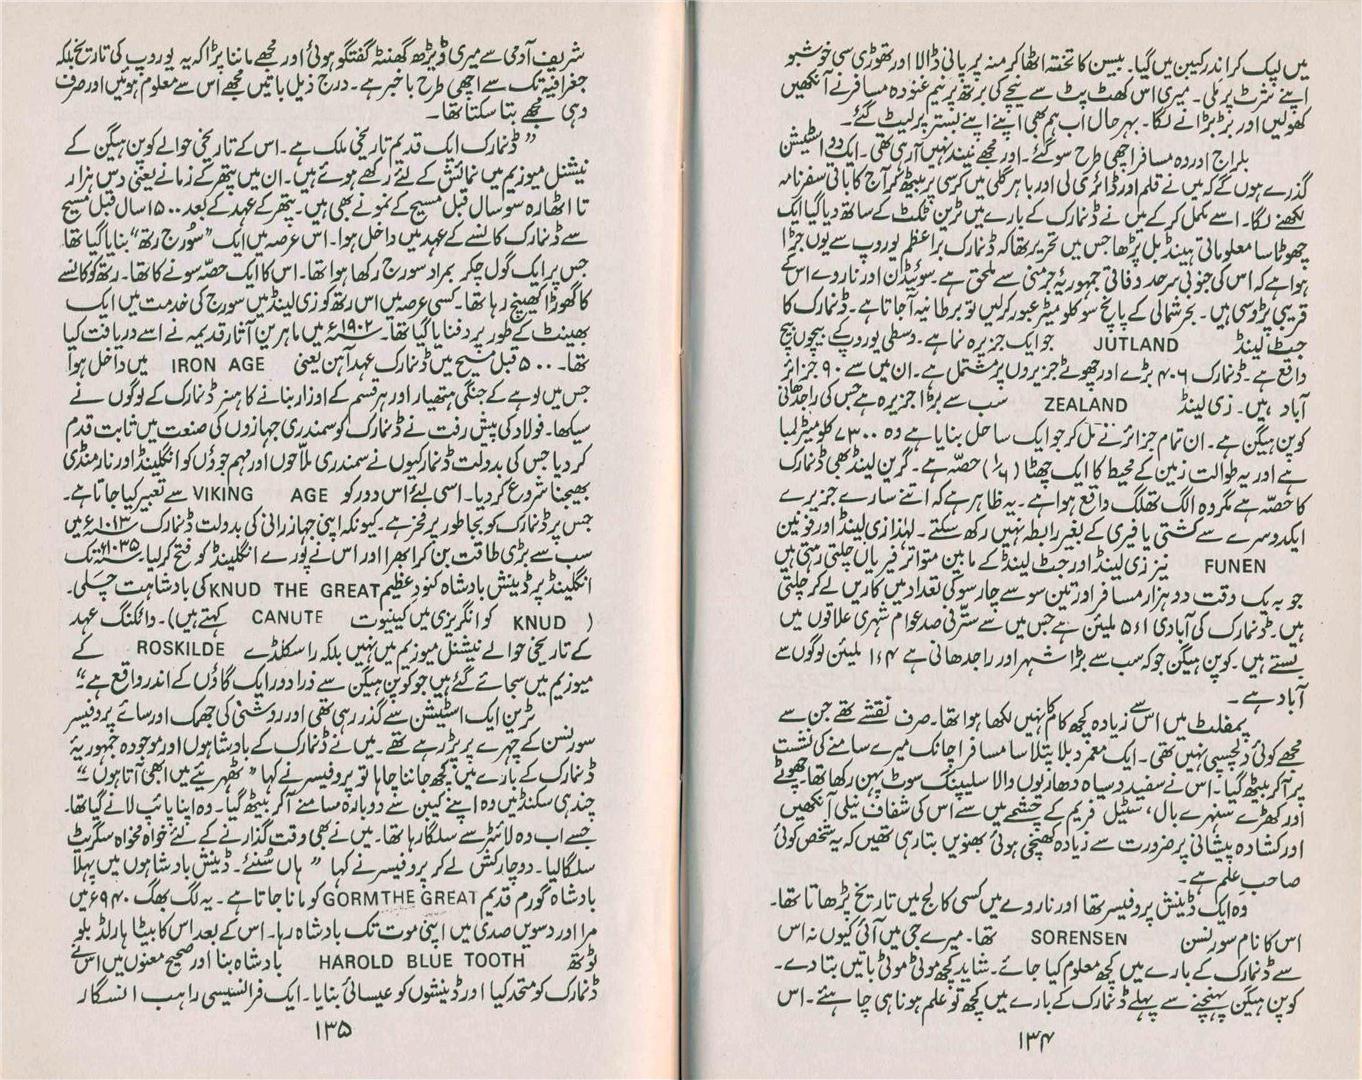 میں لپک کر اندر کیبن میں گیا۔ بیسن کا تختہ اٹھا کر منہ پر پانی ڈالا اور تھوڑی سی خوشبو
اپنے شرٹ پر ملی۔ میری اس کھٹ پٹ سے نیچے کی برتھ پر نیم غنودہ مسافر نے آنکھیں
کھولیں اور بڑبڑانے لگا۔ بہر حال اب ہم بھی اپنے اپنے بستر پر لیٹ گئے۔
بلراج اور وہ مسافر اچھی طرح سو گئے۔ اور مجھے نیند نہیں آرہی تھی۔ ایک دو اسٹیشن
گذرے ہوں گے کہ میں نے قلم اور ڈائری لی اور باہر گلی میں کرسی پر بیٹھ کر آج کا باقی سفرنامہ
لکھنے لگا۔ اسے مکمل کر کے میں نے ڈنمارک کے بارے میں ٹرین ٹکٹ کے ساتھ دیا گیا ایک
چھوٹا سا معلوماتی ہینڈبل پڑھا جس میں تحریر تھا کہ ڈنمارک براعظم یوروپ سے یوں جڑا
ہوا ہے کہ اس کی جنوبی سرحد وفاقی جمہوریۂ جرمنی سے ملحق ہے۔ سوئیڈن اور ناروے اس کے
قریبی پڑوسی ہیں۔ بحر شمالی کے پانچ سو کلو میٹر عبور کر لیں تو برطانیہ آجاتا ہے۔ ڈنمارک کا
جٹ لینڈ JUTLAND جو ایک جزیرہ نما ہے۔ وسطی یوروپ کے بیچوں بیچ
واقع ہے۔ ڈنمارک ۴۰۶ بڑے اور چھوٹے جزیروں پر مشتمل ہے۔ ان میں سے ۹۰ جزائر
آباد ہیں۔ زی لینڈ ZEALAND سب سے بڑا جزیرہ ہے جس کی راجدھانی
کوپن ہیگن ہے۔ ان تمام جزائر نے مل کر جو ایک ساحل بنایا ہے وہ ۷۳۰۰ کلو میٹر لمبا
ہے اور یہ طوالت زمین کے محیط کا ایک چھٹا (۱/۶) حصّہ ہے۔ گرین لینڈ بھی ڈنمارک
کا حصّہ ہے مگر وہ الگ تھلگ واقع ہوا ہے۔ یہ ظاہر ہے کہ اتنے سارے جزیرے
ایکدوسرے سے کشتی یا فیری کے بغیر رابطہ نہیں رکھ سکتے۔ لہٰذا زی لینڈ اور فونین
FUNEN نیز زی لینڈ اور جٹ لینڈ کے مابین متواتر فیریاں چلتی رہتی ہیں
جو بہ یک وقت دو ہزار مسافر اور تین سو سے چار سو کی تعداد میں کاریں لے کر چلتی
ہیں۔ ڈنمارک کی آبادی ۵۶۱ ملین ہے جس میں سے ستّر فی صد عوام شہری علاقوں میں
بستے ہیں۔ کوپن ہیگن جو کہ سب سے بڑا شہر اور راجدھانی ہے ۱۶۴ ملین لوگوں سے
آباد ہے۔
پمفلٹ میں اس سے زیادہ کچھ کام کا نہیں لکھا ہوا تھا۔ صرف نقشے تھے جن سے
مجھے کوئی دلچسپی نہیں تھی۔ ایک معمر دبلا پتلا سا مسافر اچانک میرے سامنے کی نشست
پر آکر بیٹھ گیا۔ اس نے سفید و سیاہ دھاریوں والا سلیپنگ سوٹ پہن رکھا تھا۔ چھوٹے
اور کھڑے سنہرے بال، سٹیل فریم کے چشمے میں سے اس کی شفاف نیلی آنکھیں
اور کشادہ پیشانی پر ضرورت سے زیادہ کھنچی ہوئی بھنویں بتا رہی تھیں کہ یہ شخص کوئی
صاحب علم ہے۔
وہ ایک ڈینش پروفیسر تھا اور ناروے میں کسی کالج میں تاریخ پڑھاتا تھا۔
اس کا نام سورنسن SORENSEN تھا۔ میرے جی میں آئی کیوں نہ اس
سے ڈنمارک کے بارے میں کچھ معلوم کیا جائے۔ شاید کچھ موٹی موٹی باتیں بتا دے۔
کوپن ہیگن پہنچنے سے پہلے ڈنمارک کے بارے میں کچھ تو علم ہونا ہی چاہئے۔ اس
۱۳۴
شریف آدمی سے میری ڈیڑھ گھنٹہ گفتگو ہوئی اور مجھے ماننا پڑا کہ یہ یوروپ کی تاریخ بلکہ
جغرافیہ تک سے اچھی طرح باخبر ہے۔ درج ذیل باتیں مجھے اس سے معلوم ہوئیں اور صرف
وہی مجھے بتا سکتا تھا۔
"ڈنمارک ایک قدیم تاریخی ملک ہے۔ اس کے تاریخی حوالے کوپن ہیگن کے
نیشنل میوزیم میں نمائش کے لئے رکھے ہوئے ہیں۔ ان میں پتھر کے زمانے یعنی دس ہزار
تا اٹھارہ سو سال قبل مسیح کے نمونے بھی ہیں۔ پتھر کے عہد کے بعد ۱۵۰۰ سال قبل مسیح
سے ڈنمارک کانسے کے عہد میں داخل ہوا۔ اس عرصہ میں ایک "سورج رتھ" بنایا گیا تھا
جس پر ایک گول چکر بمراد سورج رکھا ہوا تھا۔ اس کا ایک حصّہ سونے کا تھا۔ رتھ کو کانسے
کا گھوڑا کھینچ رہا تھا۔ کسی عرصہ میں اس رتھ کو زی لینڈ میں سورج کی خدمت میں ایک
بھینٹ کے طور پر دفنایا گیا تھا۔ ۱۹۰۲ء میں ماہرین آثار قدیمہ نے اسے دریافت کیا
تھا۔ ۵۰۰ قبل مسیح میں ڈنمارک عہد آہن یعنی IRON AGE میں داخل ہوا
جس میں لوہے کے جنگی ہتھیار اور ہر قسم کے اوزار بنانے کا ہنر ڈنمارک کے لوگوں نے
سیکھا۔ فولاد کی پیش رفت نے ڈنمارک کو سمندری جہازوں کی صنعت میں ثابت قدم
کر دیا جس کی بدولت ڈنمارکیوں نے سمندری ملّاحوں اور مہم جوؤں کو انگلینڈ اور نارمنڈی
بھیجنا شروع کر دیا۔ اسی لئے اس دور کو VIKING AGE سے تعبیر کیا جاتا ہے۔
جس پر ڈنمارک کو بجا طور پر فخر ہے۔ کیونکہ اپنی جہازرانی کی بدولت ڈنمارک ۱۰۱۳ء میں
سب سے بڑی طاقت بن کر ابھرا اور اس نے پورے انگلینڈ کو فتح کر لیا۔ ۱۰۳۵ء تک
انگلینڈ پر ڈینش بادشاہ کنود عظیم KNUD THE GREAT کی بادشاہت چلی۔
( KNUD کو انگریزی میں کینیوٹ CANUTE کہتے ہیں)۔ وائکنگ عہد
کے تاریخی حوالے نیشنل میوزیم میں نہیں بلکہ راسکلڈے ROSKILDE کے
میوزیم میں سجائے گئے ہیں جو کوپن ہیگن سے ذرا دور ایک گاؤں کے اندر واقع ہے"
ٹرین ایک اسٹیشن سے گذر رہی تھی اور روشنی کی چمک اور سائے پروفیسر
سورنسن کے چہرے پر پڑ رہے تھے۔ میں نے ڈنمارک کے بادشاہوں اور موجودہ جمہوریۂ
ڈنمارک کے بارے میں کچھ جاننا چاہا تو پروفیسر نے کہا "ٹھہریئے میں ابھی آتا ہوں"
چند ہی سکنڈ میں وہ اپنے کیبن سے دوبارہ سامنے آکر بیٹھ گیا۔ وہ اپنا پائپ لانے گیا تھا۔
جسے اب وہ لائٹر سے سلگا رہا تھا۔ میں نے بھی وقت گذارنے کے لئے خواہ مخواہ سگریٹ
سلگا لیا۔ دو چار کش لے کر پروفیسر نے کہا "ہاں سنئے۔ ڈینش بادشاہوں میں پہلا
بادشاہ گورم قدیم GORM THE GREAT کو مانا جاتا ہے۔ یہ لگ بھگ ۹۴۰ء میں
مرا اور دسویں صدی میں اپنی موت تک بادشاہ رہا۔ اس کے بعد اس کا بیٹا ہارلڈ بلو
ٹوتھ HAROLD BLUE TOOTH بادشاہ بنا اور صحیح معنوں میں اس نے
ڈنمارک کو متحد کیا اور ڈینشوں کو عیسائی بنایا۔ ایک فرانسیسی راہب انسگار
۱۳۵